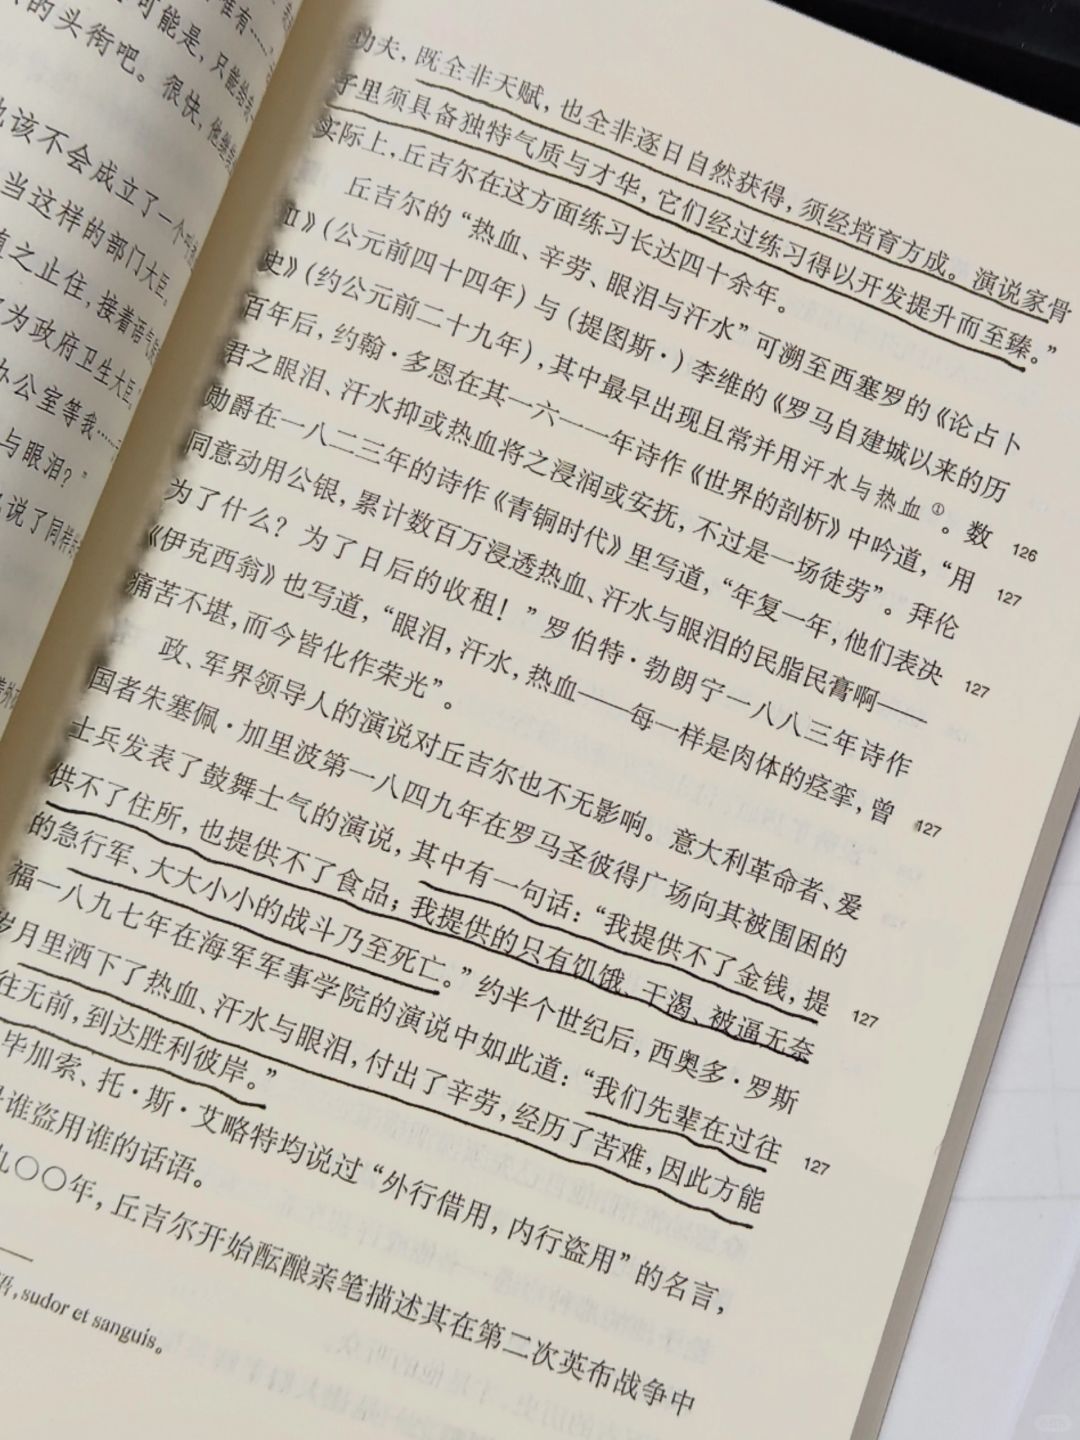 唯有……
可能是，只能给
的头衔吧。很快，他继
也该不会成立了一个
当这样的部门大臣，
随之止住，接着语气
了为政府卫生大臣
办公室等我……
与眼泪？”
说了同样
功夫，既全非天赋，也全非逐日自然获得，须经培育方成。演说家骨
子里须具备独特气质与才华，它们经过练习得以开发提升而至臻。”
实际上，丘吉尔在这方面练习长达四十余年。
丘吉尔的“热血、辛劳、眼泪与汗水”可溯至西塞罗的《论占卜
血》（公元前四十四年）与（提图斯·）李维的《罗马自建城以来的历
史》（约公元前二十九年），其中最早出现且常并用汗水与热血①。数 126
百年后，约翰·多恩在其一六一一年诗作《世界的剖析》中吟道，“用 127
君之眼泪、汗水抑或热血将之浸润或安抚，不过是一场徒劳”。拜伦
勋爵在一八二三年的诗作《青铜时代》里写道，“年复一年，他们表决 127
同意动用公银，累计数百万浸透热血、汗水与眼泪的民脂民膏啊——
为了什么？为了日后的收租！”罗伯特·勃朗宁一八八三年诗作
《伊克西翁》也写道，“眼泪，汗水，热血——每一样是肉体的痉挛，曾 127
痛苦不堪，而今皆化作荣光”。
政、军界领导人的演说对丘吉尔也不无影响。意大利革命者、爱
国者朱塞佩·加里波第一八四九年在罗马圣彼得广场向其被围困的
士兵发表了鼓舞士气的演说，其中有一句话：“我提供不了金钱，提 127
供不了住所，也提供不了食品；我提供的只有饥饿、干渴、被逼无奈
的急行军、大大小小的战斗乃至死亡。”约半个世纪后，西奥多·罗斯
福一八九七年在海军军事学院的演说中如此道：“我们先辈在过往 127
岁月里洒下了热血、汗水与眼泪，付出了辛劳，经历了苦难，因此方能
往无前，到达胜利彼岸。”
毕加索、托·斯·艾略特均说过“外行借用，内行盗用”的名言，
谁盗用谁的话语。
九〇〇年，丘吉尔开始酝酿亲笔描述其在第二次英布战争中
语，sudor et sanguis。